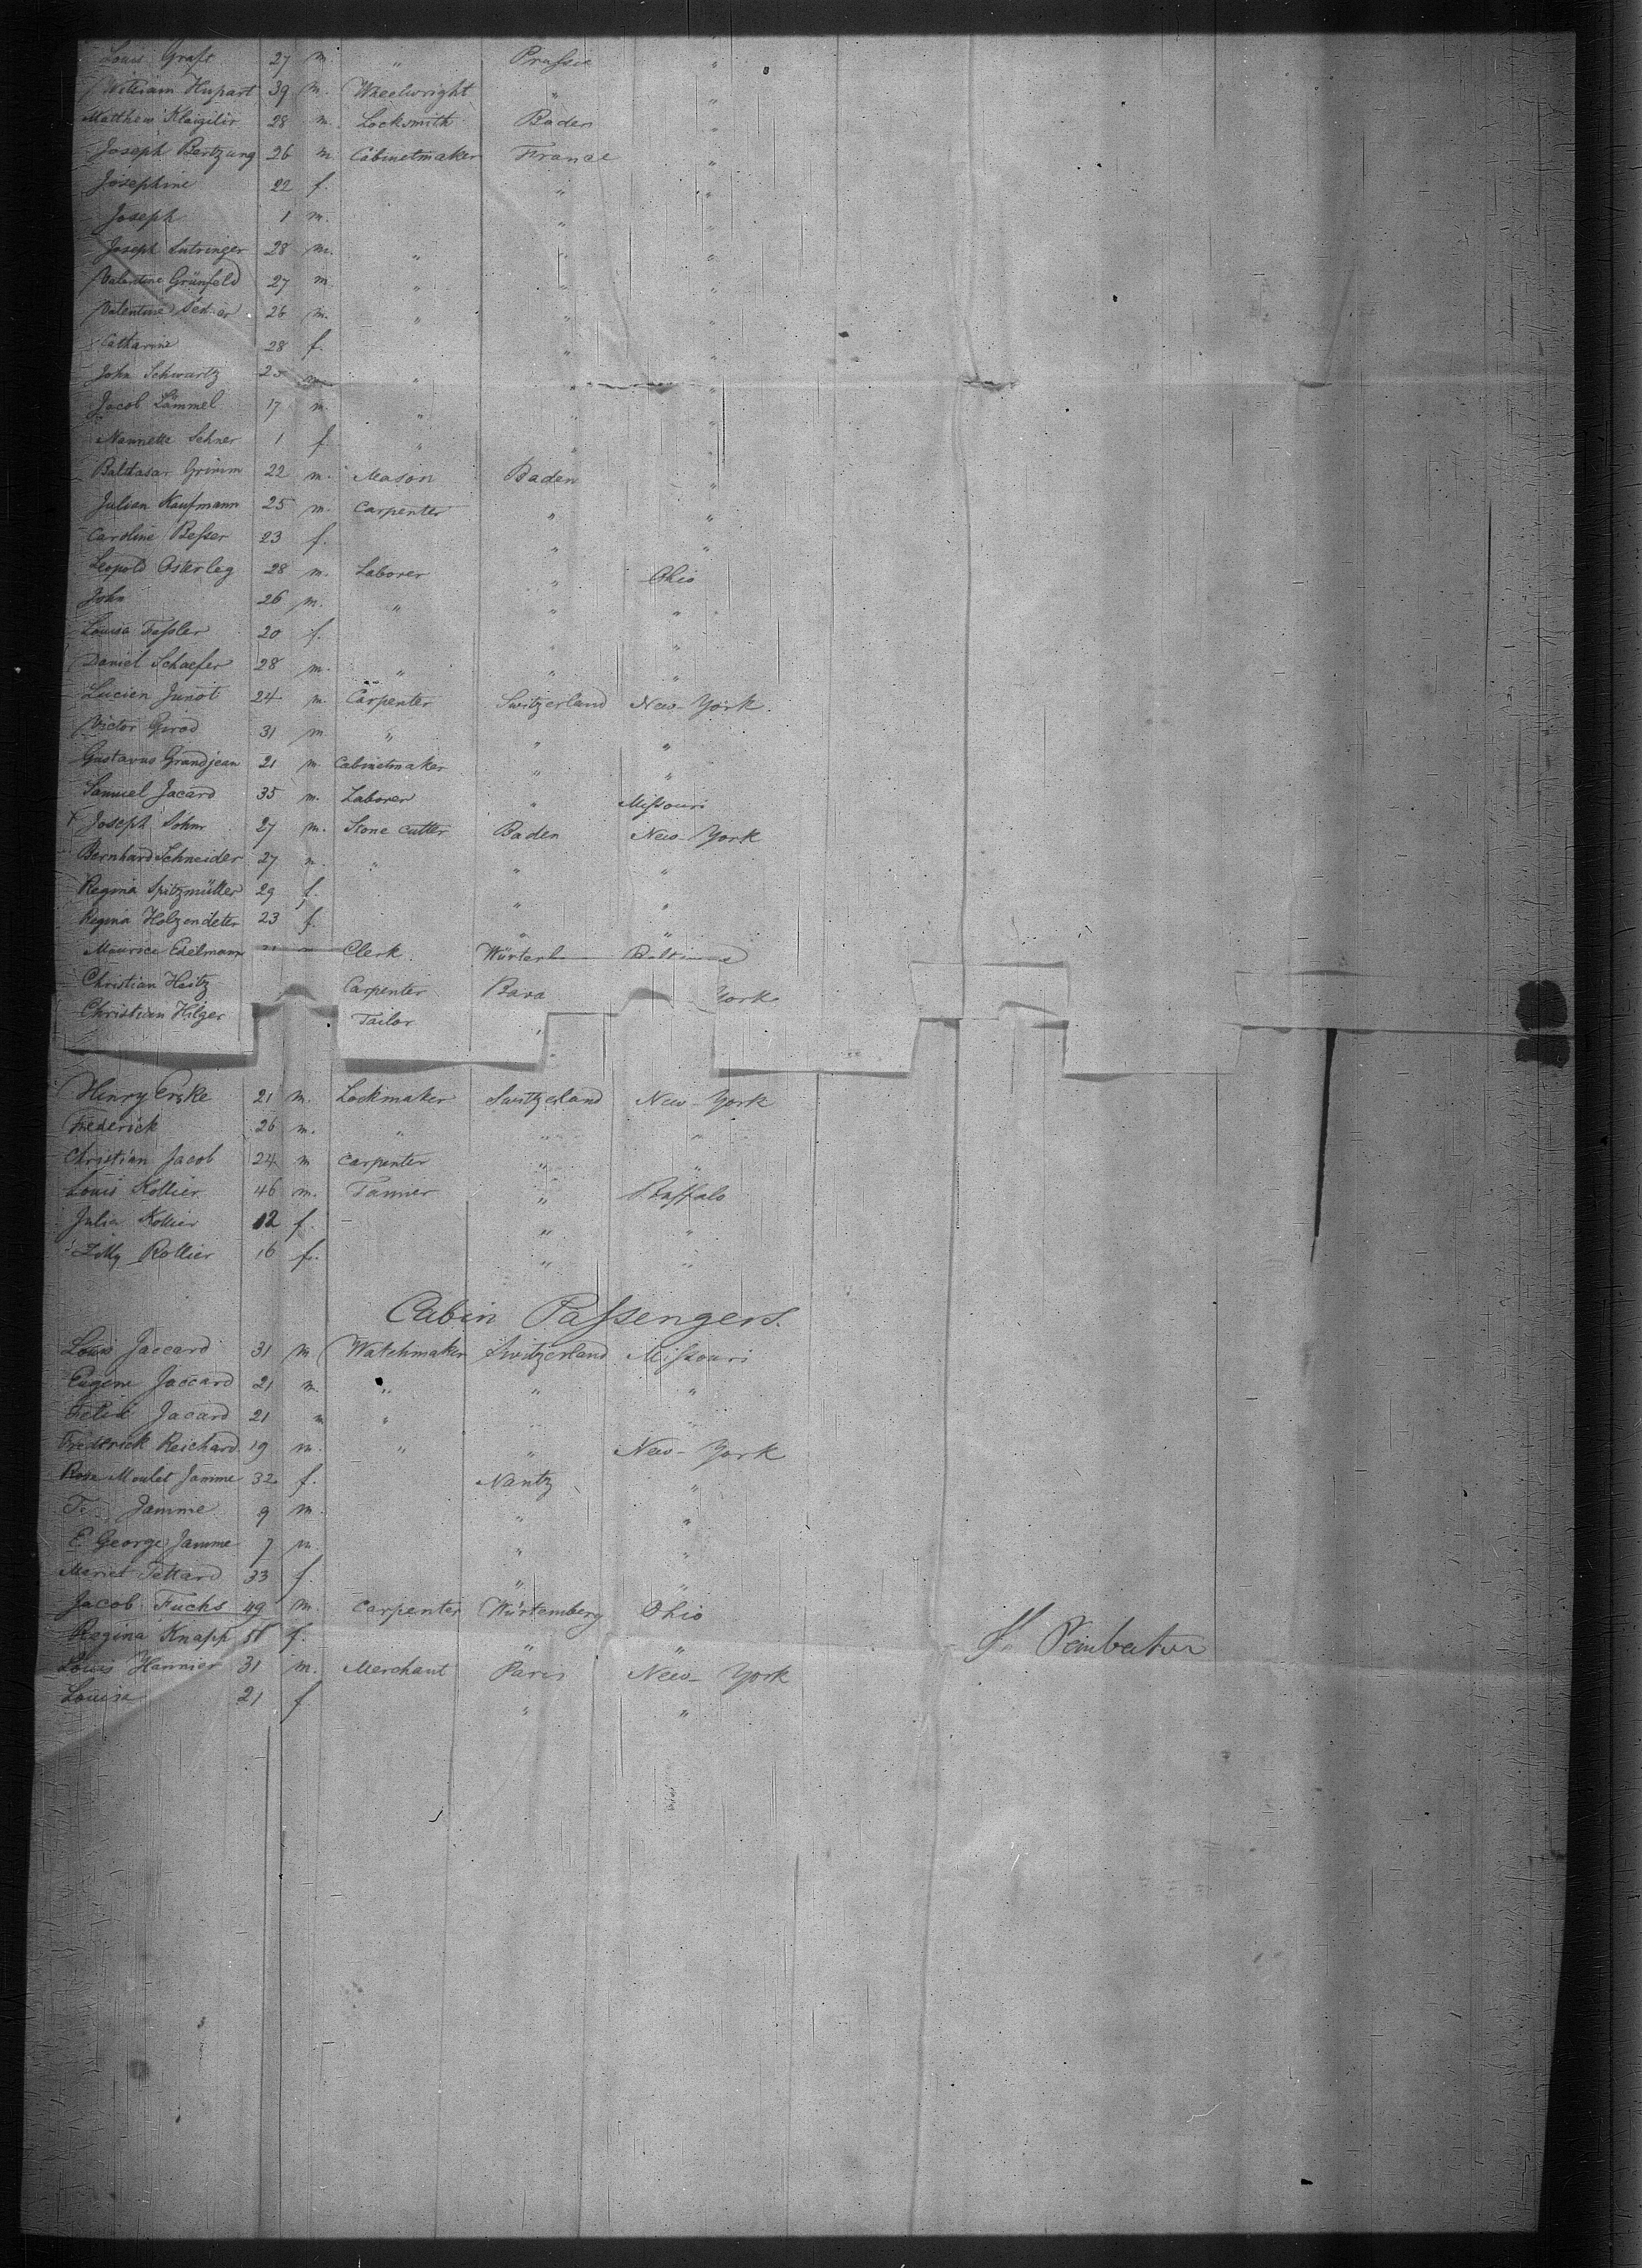 Louis Grafs 27 m. " Prussia "
William Hupart 39 m. Wheelwright " "
Matthew 28 m. Locksmith Baden "
Joseph Bertzung 26 m. Cabinetmaker France "
Josephine 22 f. " "
Joseph 1 m. " "
Joseph Lutringer 28 m. " " "
Valentine Grünfeld 27 m. " " "
Valentine 26 m. " " "
Catharine 28 f. " "
John Schwartz 25 " " "
Jacob Lämmel 17 m. " " "
Nannette Schner 1 f. " " "
Baltasar Grimm 22 m. Mason Baden "
Julian Kaufmann 25 m. Carpenter " "
Caroline Besser 23 f. " "
Leopold Osterleg 28 m. Laborer " Ohio
John 26 m. " " "
Louisa Fassler 20 f. " "
Daniel Schaefer 28 m. " " "
Lucien Junot 24 m. Carpenter Switzerland New-York.
Victor Girod 31 m " " "
Gustavus Grandjean 21 m. Cabinetmaker " "
Samuel Jacard 35 m. Laborer " Missouri
x Joseph Sohm 27 m. Stone cutter Baden New-York
Bernhard Schneider 27 m. " " "
Regina Spitzmüller 29 f. " "
Regina Holzendeter 23 f. " "
Maurice Edelmann Clerk.
Christian Heitz Carpenter Bava York
Christian Hilger Tailor "
Henry Erske 21 m. Lockmaker Switzerland New-York
Frederick 26 m. " " "
Christian Jacob 24 m Carpenter " "
Louis Rollier 46 m. Tanner " Buffalo
Julia Rollier 12 f. " "
Lilly Rollier 16 f. " "
Cabin Passengers.
Louis Jaccard 31 m Watchmaker Switzerland Missouri
Eugene Jaccard 21 m. " " "
Felix Jacard 21 m " "
Frederick Reichard 19 m. " " New-York
Rose Moulet Jamme 32 f. Nantz "
T. Jamme 9 m. " "
E. George Jamme 7 m. " "
Meriet Tettard 33 f. " "
Jacob Fuchs 49 m. Carpenter Würtemberg Ohio
Regina Knapp 51 f. " "
Louis Hannier 31 m. Merchant Paris New-York
Louisa 21 f " "